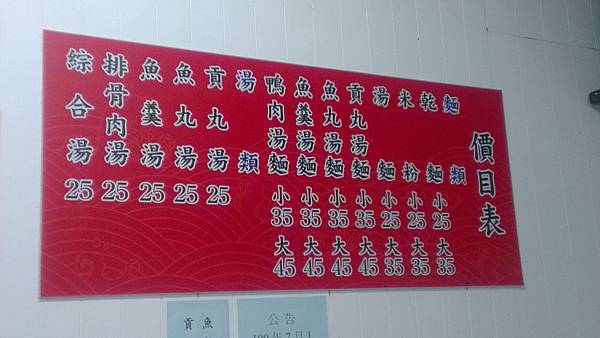 價目表
麵類
乾麵 小25 大35
米粉 小25 大35
湯麵 小25 大35
貢丸湯麵 小35 大45
魚丸湯麵 小35 大45
魚羹湯麵 小35 大45
鴨肉湯麵 小35 大45
湯類
貢丸湯 25
魚丸湯 25
魚羹湯 25
排骨肉湯 25
綜合湯 25
魚
貢
公告